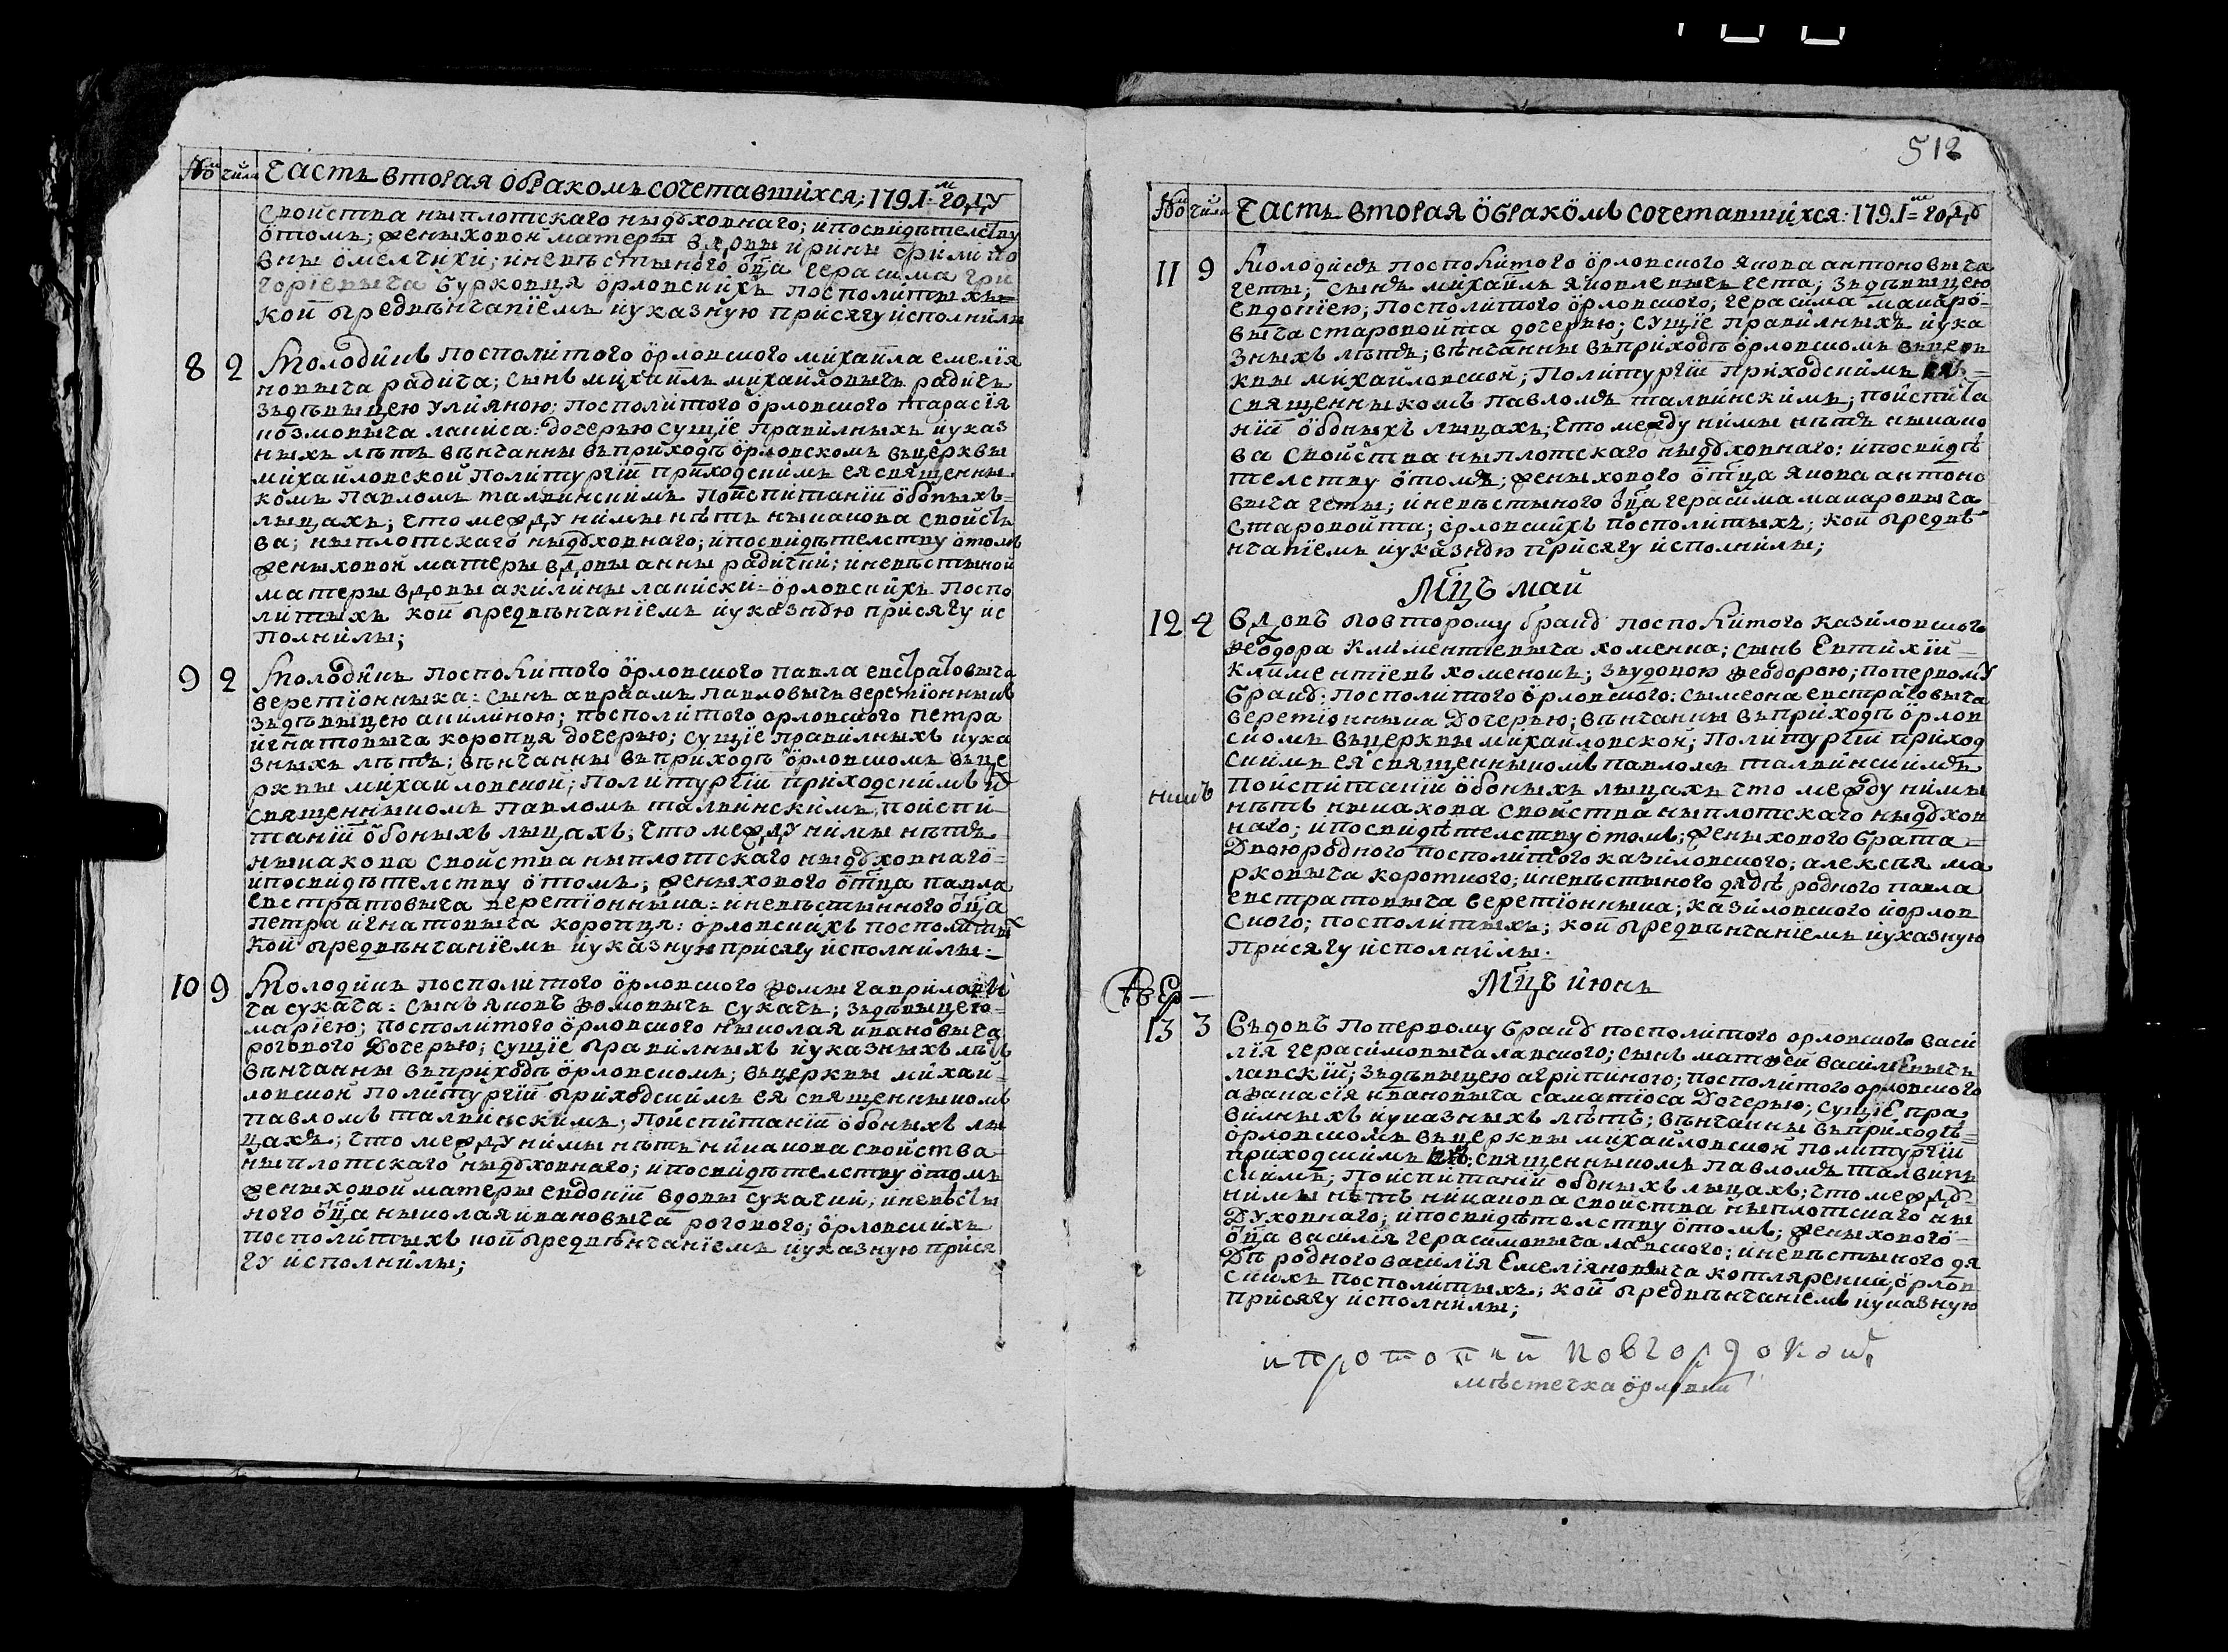 Часть вторая о бракомъ сочетавшихся; 1791 м году
свойства ныплотскаго ныдховнаго; ипосвидѣтелству
отомъ; жеыховой матеры вдовы ирины
вны омелчихи; иневѣстыного оца герасима гри
горіевыча бурковця орловскихъ посполитыхъ=
кои предвѣнчаніемъ иуказную присягу исполнилы
8 2 Молодикъ посполитого орловского михаила емелія
новыча радича; сынъ михаилъ михайловычъ радичъ
зъдѣвыцею уліяною; посполитого орловского тарасія
козмовыча лаписа: дочерью сущіе правилныхъ иуказ
ныхъ лѣтъ вѣнчанны въприходѣ орловскомъ въцеркви
михайловской політургіи приходскимъ ея священны
комъ павломъ талвинскимъ поиспитаніи обоныхъ=
лыцахъ; что между нимы нѣтъ ныкакова свойст
ва; ныплотскаго ныдховнаго; ипосвидѣтелству отомъ
жеыховой матеры вдовы анны радички; иневѣстыной
матеры вдовы акилины лаписки= орловскихъ поспо
литыхъ кои предвѣнчаніемъ иуказндю присягу ис
полнилы;
9 2 Молодикъ посполитого орловского павла евстратовыча
веретіонныка: сынъ авраамъ павловычъ веретіонныкъ
зъдѣвыцею акилиною; посполитого орловского петра
игнатовыча коропця дочерью; сущіе правилныхъ иука
зныхъ лѣтъ; вѣнчанны въприходѣ орловскомъ въце
рквы михайловской; політургіи приходскимъ
священныкомъ павломъ талвинскимъ поиспи=
таніи обоныхъ лыцахъ; что между нимы нѣтъ=
ныкакова свойства ныплотскаго ныдховнаго=
ипосвидѣтелству отомъ; жеыхового отца павла
евстратовыча веретіонныка= иневѣстынного оца
петра игнатовыча коропця: орловскихъ посполитых
кои предвѣнчаніемъ иуказную присягу исполнилы=
10 9 Молодикъ посполитого орловского фомы гавриловы
ча сукача: сынъ яковъ фомовычъ сукачъ; зъдѣвыцею=
маріею; посполитого орловского ныколая ивановыча
рогового дочерью; сущіе правилныхъ иуказныхъ лѣтъ
вѣнчанны въприходѣ орловскомъ; въцерквы михай=
ловской політургіи приходскимъ ея священныкомъ
павломъ талвинскимъ; поиспитаніи обоныхъ лы
цахъ; что между нимы нѣтъ никакова свойства
ныплотскаго ныдховнаго; ипосвидѣтелству отомъ
жеыховой матеры евдокіи вдовы сукачки; иневѣсты
ного оца ныколая ивановыча рогового; орловскихъ
посполитыхъ кои предвѣнчаніемъ иуказную прися
гу исполнилы;
512
Часть вторая о бракомъ сочетавшихся: 1791 м годд
11 9 Молодикъ посполитого орловского якова антоновыча
четы; сынъ михаилъ яковлевычъ чета; зъдѣвыцею
евдокіею; посполитого орловского; герасима макаро=
выча старовойта дочерью; сущіе правилныхъ иука
зныхъ лѣтъ; вѣнчанны въприходѣ орловскомъ въцер
квы михайловской; політургіи приходскимъ ея=
священныкомъ павломъ талвинскимъ; поиспита
ніи обоныхъ лыцахъ; что между нимы нѣтъ ныкако
ва свойства ныплотскаго ныдховнаго: ипосвидѣ
телству отомъ; жеыхового отца якова антоно
выча четы; иневѣстыного оца герасима макаровыча
старовойта; орловскихъ посполитыхъ; кои предвѣ
нчаніемъ иуказндю присягу исполнилы;
Мцъ май
12 4 Вдовъ повторому бракд посполитого казиловского
феодора климентіевыча хоменка; сынъ евтихій=
климентіевъ хоменокъ; звудовою феодорою; поперводу
бракд: посполитого орловского: сымеона евстратовыча
веретіонныка дочерью; вѣнчанны въприходѣ орлов
скомъ въцерквы михайловской; політургіи приход
скимъ ея священныкомъ павломъ талвинскимъ
поиспитаніи обоныхъ лыцахъ что между нимы
нѣтъ ныкакова свойства ныплотскаго ныдхов
наго; ипосвидѣтелству отомъ; жеыхового брата=
двоюродного посполитого казиловского; алексѣя ма
рковыча короткого; иневѣстыного дядѣ родного павла
евстратовыча веретіонныка; казиловского иорлов
ского; посполитыхъ; кои предвѣнчаніемъ иуказную
присягу исполнилы.
Мцъ июнъ
13 3 Въдовъ поперовому бракд посполитого орловского васи
лія герасимовыча лапского; сынъ матфей василіевычъ
лапскій; зъдѣвыцею агрипиною; посполитого орловского
афанасія ивановыча саматіоса дочерью; сущіе пра
вилныхъ иуказныхъ лѣтъ; вѣнчанны въприходѣ=
орловскомъ въцерквы михайловской политургіи
приходскимъ священныкомъ павломъ талвинъ
скимъ; поиспитаніи обоныхъ лыцахъ; что межд
нимы нѣтъ никакова свойства ныплотскаго ны
духовнаго; ипосвидѣтелству отомъ; жеыхового=
оца василія герасимовыча лапского; иневѣстыного дя
дѣ родного василія емеліяновыча котляренка; орлов
скихъ посполитыхъ; кои предвѣнчаніемъ иуказную
присягу исполнилы;
ипротопіи новгородской
мѣстечка орловки